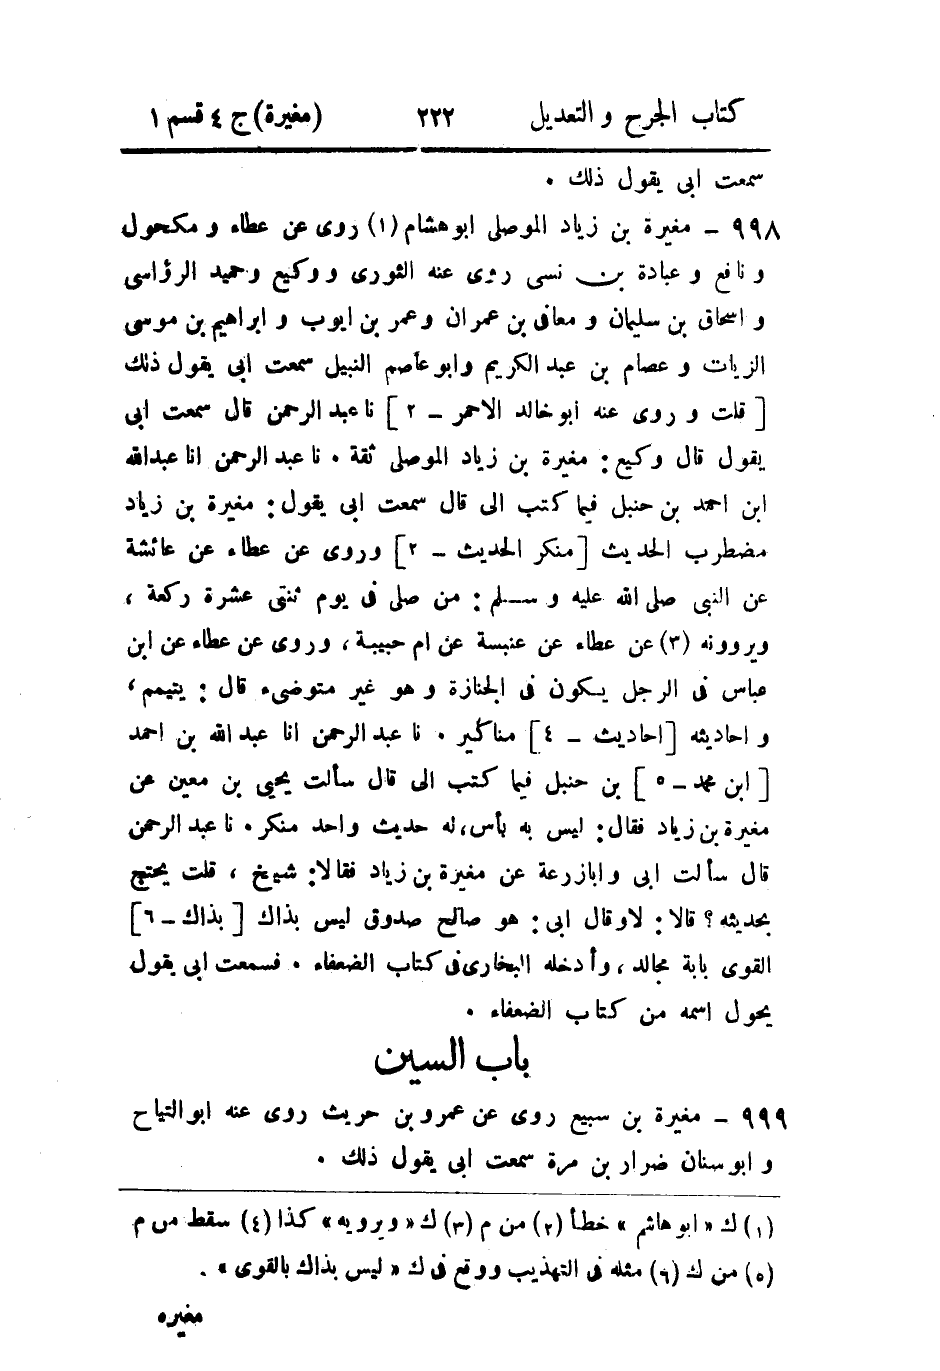 كتاب الجرح و التعديل ٢٢٢ (مغيرة) ج ٤ قسم ١
سمعت ابى يقول ذلك .
٩٩٨ - مغيرة بن زياد الموصلى ابو هشام (١) روى عن عطاء و مكحول
و نافع و عبادة بن نسى روى عنه الثورى و وكيع وحميد الرؤاسى
و اسحاق بن سليمان و معافى بن عمران وعمر بن ايوب و ابراهيم بن موسى
الزيات و عصام بن عبد الكريم وابو عاصم النبيل سمعت ابى يقول ذلك
[ قلت و روى عنه ابو خالد الاحمر - ٢ ] نا عبد الرحمن قال سمعت ابى
يقول قال وكيع : مغيرة بن زياد الموصلى ثقة . نا عبد الرحمن انا عبدالله
ابن احمد بن حنبل فيما كتب الى قال سمعت ابى يقول : مغيرة بن زياد
مضطرب الحديث [منكر الحديث - ٢] وروى عن عطاء عن عائشة
عن النبى صلى الله عليه وسلم : من صلى فى يوم ثنتى عشرة ركعة ،
ويروونه (٣) عن عطاء عن عنبسة عن ام حبيبة ، وروى عن عطاء عن ابن
عباس فى الرجل يكون فى الجنازة و هو غير متوضىء قال : يتيمم ،
و احاديثه [احاديث - ٤] مناكير . نا عبد الرحمن انا عبد الله بن احمد
[ ابن محمد - ٥ ] بن حنبل فيما كتب الى قال سألت يحيى بن معين عن
مغيرة بن زياد فقال : ليس به بأس، له حديث واحد منكر . نا عبد الرحمن
قال سألت ابى وابازرعة عن مغيرة بن زياد فقالا : شيخ ، قلت يحتج
بحديثه ؟ قالا : لا وقال ابى : هو صالح صدوق ليس بذاك [ بذاك - ٦ ]
القوى بابة مجالد ، وأدخله البخارى فى كتاب الضعفاء . فسمعت ابى يقول
يحول اسمه من كتاب الضعفاء .
باب السين
٩٩٩ - مغيرة بن سبيع روى عن عمرو بن حريث روى عنه ابو التياح
و ابو سنان ضرار بن مرة سمعت ابى يقول ذلك .
(١) ك « ابو هاشم » خطأ (٢) من م (٣) ك « ويرويه » كذا (٤) سقط من م
(٥) من ك (٦) مثله فى التهذيب ووقع فى ك « ليس بذاك بالقوى » .
مغيره